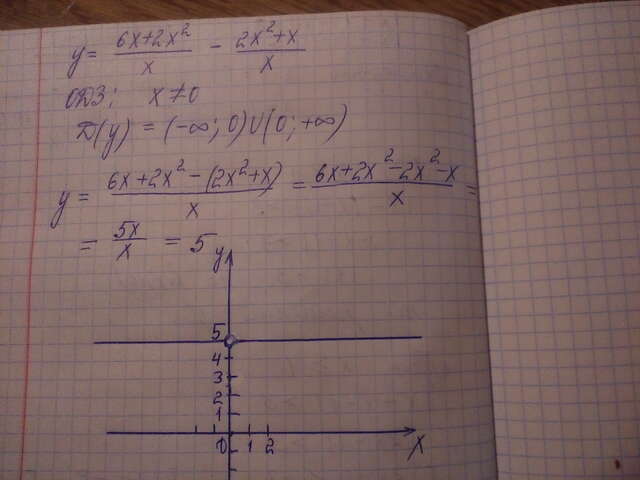 y = (6x+2x²)/x - (2x²+x)/x
ОДЗ; x ≠ 0
D(y) = (-∞; 0)∪(0; +∞)
y = (6x+2x²-(2x²+x))/x = (6x+2x²-2x²-x)/x =
= 5x/x = 5
y
5
4
3
2
1
0 1 2 X